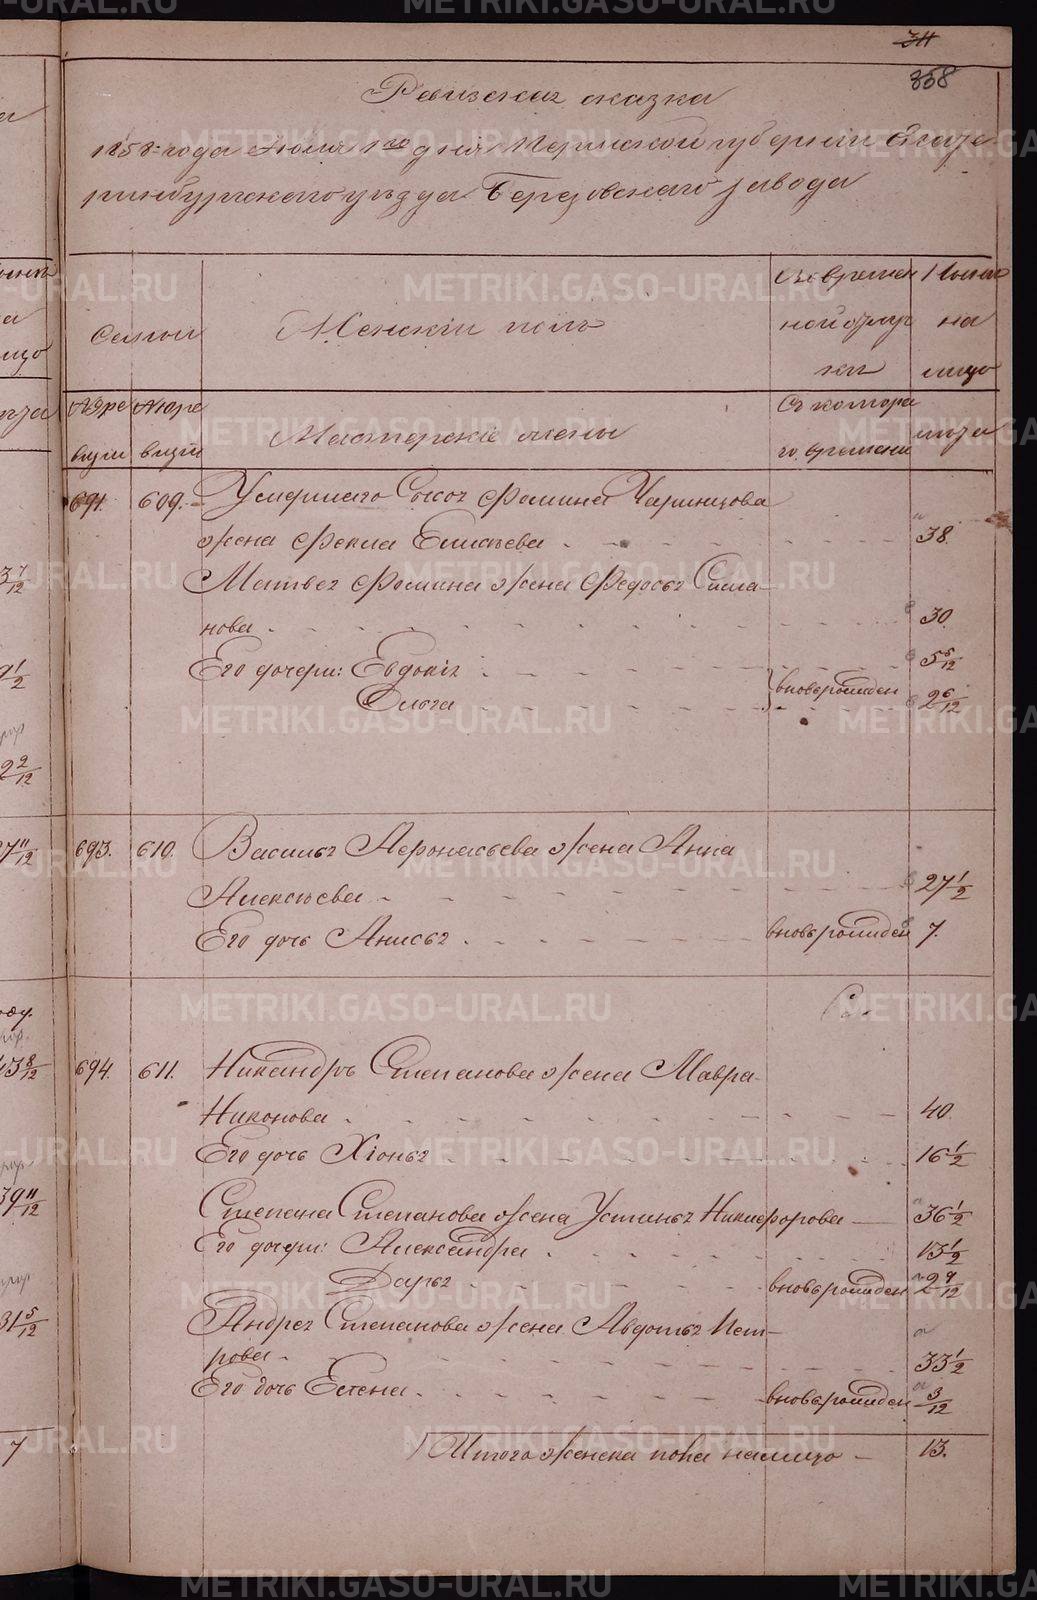 358
Ревизская сказка
1858 года Июня 1го дня Пермской губернии Екате
ринбургского уезда Березовского завода
Семьи
Женский полъ
Во времен
ной отлуч
ке
Ныне
на
лицо
Мастерские члены
Съ котора
го времени
лета
691. 609. Умершаго Фомина
жена Фекла Елисеева 38.
Матвея Фомина жена Федосья Сила-
нова 30.
Его дочери: Евдокия 5 5/12
Олога вновьрожден 2 6/12
693. 610. Василья Афонасьева жена Анна
Алексеева 27 1/2
Его дочь Анисья вновьрожден 7.
694. 611. Никандръ Степанова жена Мавра
Никонова 40.
Его дочь Хіонья 16 1/2
Степана Степанова жена Устинья Никифорова 36 1/2
Его дочери: Александра 13 1/2
Дарья вновьрожден 2 9/12
Андрея Степанова жена Авдотья Пет-
рова 33 1/2
Его дочь Елена вновьрожден 3/12
Итого женска пола налицо 13.
METRIKI.GASO-URAL.RU